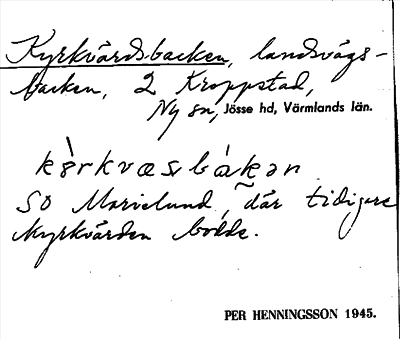 Kyrkvärdsbacken, landsvägs-
backen, 2 Kroppstad,
Ny sn, Jösse hd, Värmlands län.
kø̀rkvæsbákan
SO Marielund, där tidigare
kyrkvärden bodde.
PER HENNINGSSON 1945.